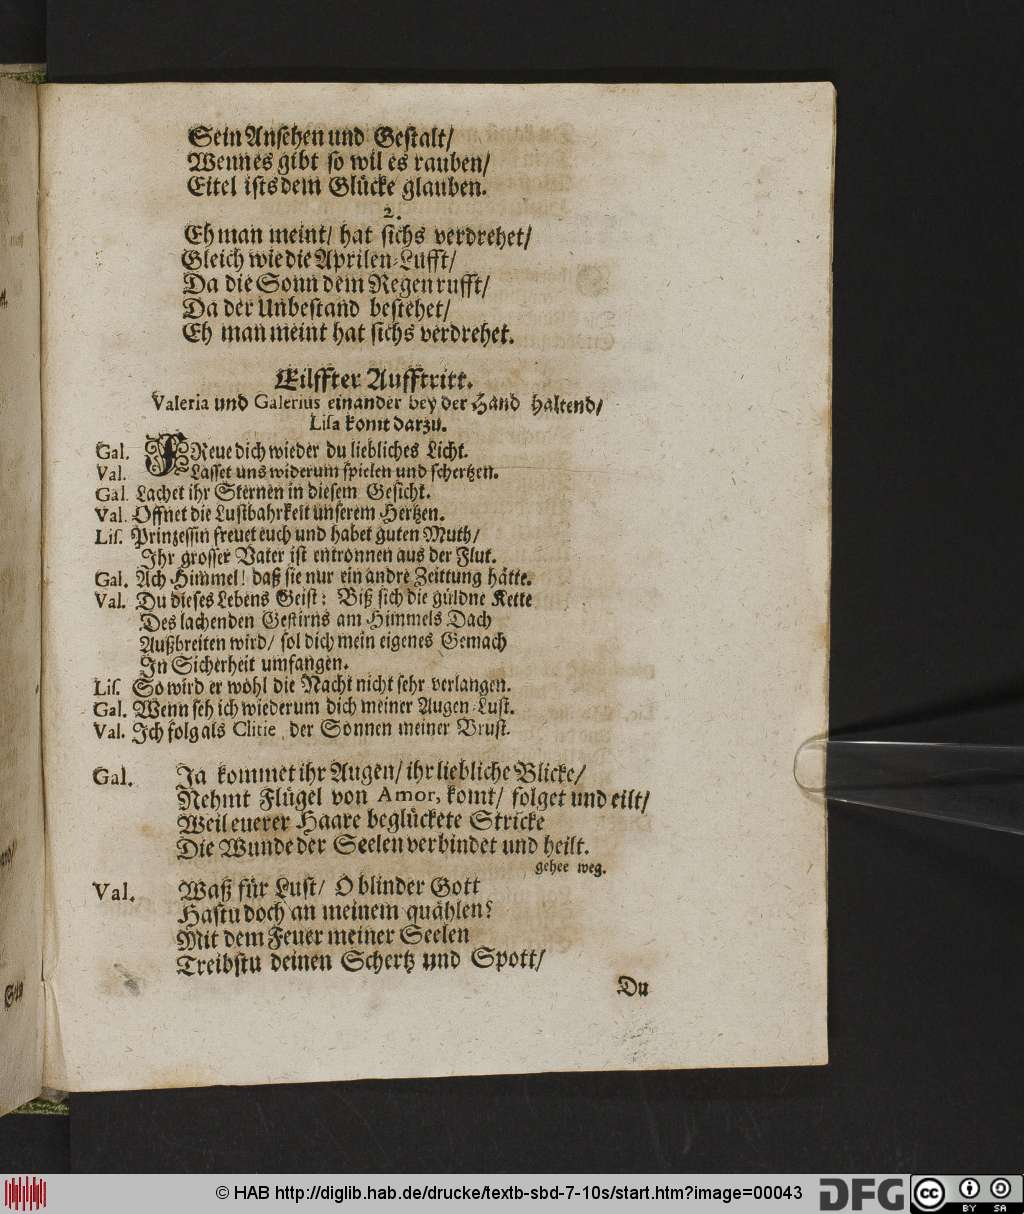 Sein Ansehen und Gestalt/
Wennes gibt so wil es rauben/
Eitel ists dem Glücke glauben.
2.
Eh man meint/ hat sichs verdrehet/
Gleich wie die Aprilen-Lufft/
Da die Sonn dem Regen rufft/
Da der Unbestand bestehet/
Eh man meint hat sichs verdrehet.
Eilffter Aufftritt.
Valeria und Galerius einander bey der Hand haltend/
Lisa komt darzu.
Gal. FReue dich wieder du liebliches Licht.
Val. Lasset uns widerum spielen und schertzen.
Gal. Lachet ihr Sternen in diesem Gesicht.
Val. Öffnet die Lustbahrkeit unserem Hertzen.
Lis. Prinzessin freuet euch und habet guten Muth/
Ihr grosser Vater ist entronnen aus der Flut.
Gal. Ach Himmel! daß sie nur ein andre Zeittung hätte.
Val. Du dieses Lebens Geist: Biß sich die güldne Kette
Des lachenden Gestirns am Himmels Dach
Außbreiten wird/ sol dich mein eigenes Gemach
In Sicherheit umfangen.
Lis. So wird er wohl die Nacht nicht sehr verlangen.
Gal. Wenn seh ich wiederum dich meiner Augen-Lust.
Val. Ich folg als Clitie der Sonnen meiner Brust.
Gal. Ja kommet ihr Augen/ ihr liebliche Blicke/
Nehmt Flügel von Amor, komt/ folget und eilt/
Weil euerer Haare beglückete Stricke
Die Wunde der Seelen verbindet und heilt.
gehee weg.
Val. Waß für Lust/ O blinder Gott
Hastu doch an meinem quählen?
Mit dem Feuer meiner Seelen
Treibstu deinen Schertz und Spott/
Du
© HAB http://diglib.hab.de/drucke/textb-sbd-7-10s/start.htm?image=00043
DFG
cc BY SA